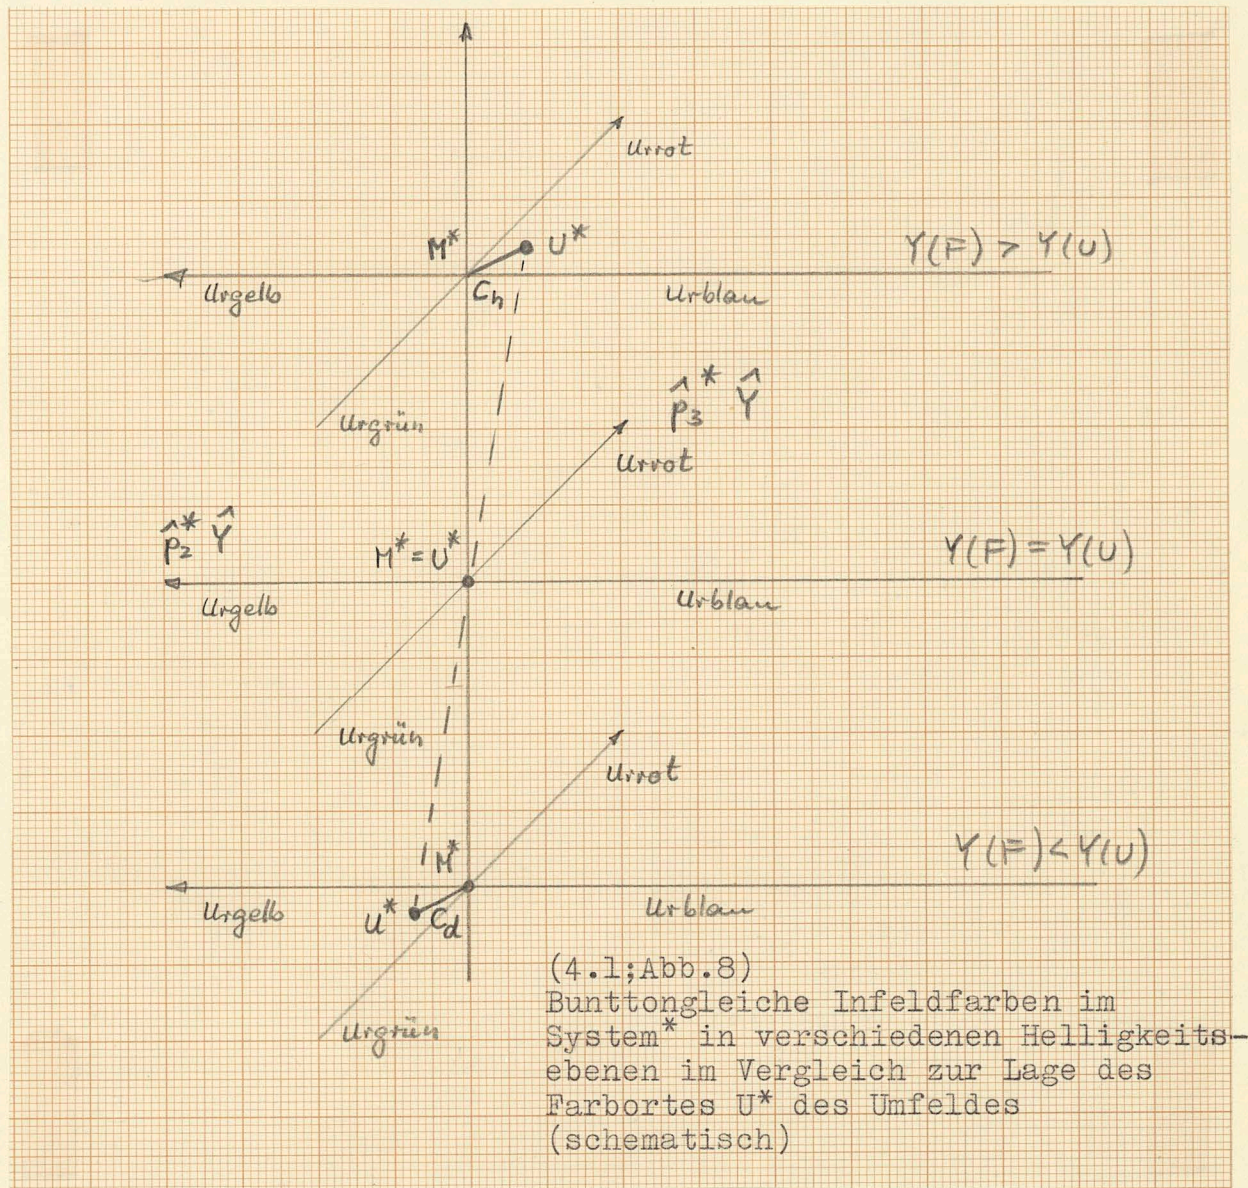 Urrot
M* U* Y(F) > Y(U)
Urgelb Ch Urblau
p̂₃* Ŷ
Urgrün
Urrot
p̂₂* Ŷ
M* = U* Y(F) = Y(U)
Urgelb Urblau
Urgrün
Urrot
M* Y(F) < Y(U)
Urgelb U* Cd Urblau
(4.1;Abb.8)
Bunttongleiche Infeldfarben im
System* in verschiedenen Helligkeits-
Urgrün
ebenen im Vergleich zur Lage des
Farbortes U* des Umfeldes
(schematisch)